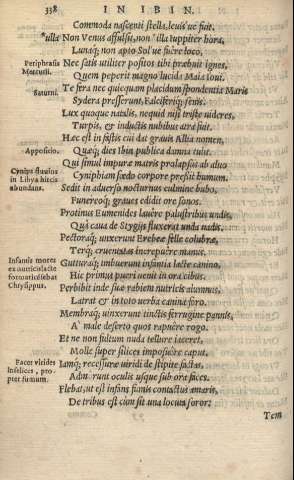 338 IN IBIN.
Commoda nascenti stella, leuis ue fuit.
*ulla Non Venus affulsit, non illa Iuppiter hora,
Lunaq; non apto Sol ue fuere loco,
Periphrasis Mercurii.
Nec satis utiliter positos tibi præbuit ignes,
Quem peperit magno lucida Maia Ioui.
Saturni.
Te fera nec quicquam placidum spondentia Martis
Sydera presserunt, Falciferiq; senis.
Lux quoque natalis, nequid nisi triste uideres,
Turpis, & inductis nubibus atra fuit.
Hæc est in fastis cui dat grauis Allia nomen,
Appositio.
Quæq; dies Ibin publica damna tulit.
Qui simul impuræ matris prolapsus ab aluo
Cynips fluuius in Libya hircis abundans.
Cyniphiam fœdo corpore pressit humum.
Sedit in aduerso nocturnus culmine bubo,
Funereoq; graues edidit ore sonos.
Protinus Eumenides lauere palustribus undis,
Quà caua de Stygijs fluxerat unda uadis.
Pectoraq; unxerunt Erebeæ felle colubræ,
Terq; cruentatas increpuere manus.
Infamis mores ex nutricis lacte
Gutturaq; imbuerunt infantia lacte canino,
Hic primus pueri uenit in ora cibus.
Chrysippus.
Perbibit inde suæ rabiem nutricis alumnus,
Latrat & in toto uerba canina foro.
Membraq; uinxerunt tinctis ferrugine pannis,
A male deserto quos rapuere rogo.
Et ne non fultum nuda tellure iaceret,
Molle super silices imposuere caput.
Faces virides infelices, propter fumum.
Iamq; recessuræ uiridi de stipite factas,
Admorunt oculis usque sub ora faces.
Flebat, ut est infans fumis contactus amaris,
De tribus est cùm sit una locuta soror:
Tem